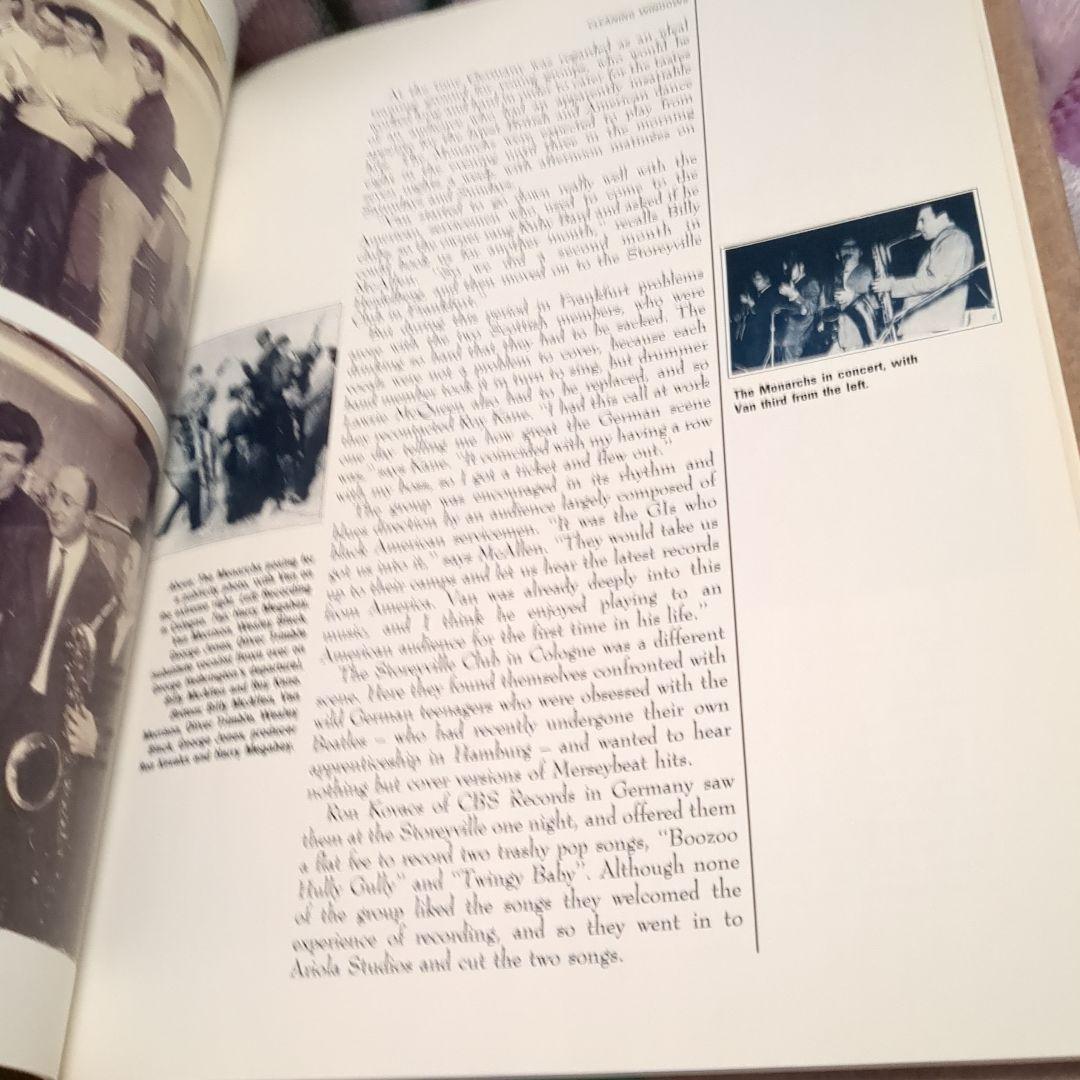 CLEANING WINDOWS
At the time Germany was regarded as an ideal
training ground for young groups, who would be
worked very hard in order to cater for the tastes
of an audience who had an apparently insatiable
appetite for the latest British and American dance
music. The Monarchs were expected to play from
eight in the evening until three in the morning
seven nights a week, with afternoon matinees on
Saturdays and Sundays.
"Van started to go down really well with the
American servicemen who used to come to the
club, so the owner rang Ruby Bard and asked if he
could book us for another month," recalls Billy
McAllen. "So we did a second month in
Heidelberg, and then moved on to the Storeyville
Club in Frankfurt."
But during this period in Frankfurt problems
arose with the two Scottish members, who were
drinking so hard that they had to be sacked. The
vocals were not a problem to cover, because each
band member took it in turn to sing, but drummer
Lawrie McQueen also had to be replaced, and so
they recontacted Roy Kane. "I had this call at work
one day telling me how great the German scene
was," says Kane. "It coincided with my having a row
with my boss, so I got a ticket and flew out."
The group was encouraged in its rhythm and
blues direction by an audience largely composed of
black American servicemen. "It was the GIs who
got us into it," says McAllen. "They would take us
up to their camps and let us hear the latest records
from America. Van was already deeply into this
music, and I think he enjoyed playing to an
American audience for the first time in his life."
The Storeyville Club in Cologne was a different
scene. Here they found themselves confronted with
wild German teenagers who were obsessed with the
Beatles – who had recently undergone their own
apprenticeship in Hamburg – and wanted to hear
nothing but cover versions of Merseybeat hits.
Ron Kovacs of CBS Records in Germany saw
them at the Storeyville one night, and offered them
a flat fee to record two trashy pop songs, "Boozoo
Hully Gully" and "Twingy Baby". Although none
of the group liked the songs they welcomed the
experience of recording, and so they went in to
Ariola Studios and cut the two songs.
Above: The Monarchs posing for
a publicity photo, with Van on
the extreme right. Left: Recording
in Cologne.
Van Morrison, Wesley Black,
George Jones, Oliver Trimble
Billy McAllen and Roy Kane.
Billy McAllen, Van
Morrison, Oliver Trimble, Wesley
Black, George Jones, producer
Ron Kovacs and Harry Megahey.
The Monarchs in concert, with
Van third from the left.